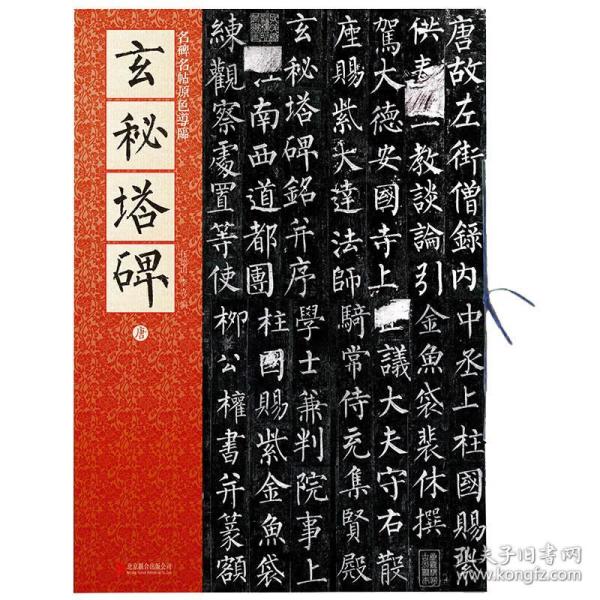 唐故左街僧錄內中丞上柱國賜
供奉三教談論引金魚袋裴休撰
駕大德安國寺上議大夫守右散
座賜紫大達法師騎常侍充集賢殿
玄秘塔碑銘并序學士兼判院事上
江南西道都團柱國賜紫金魚袋
練觀察處置等使柳公權書并篆額
名碑名帖原色導臨
玄秘塔碑
唐
北京聯合出版公司
孔夫子旧书网
kongfz.com